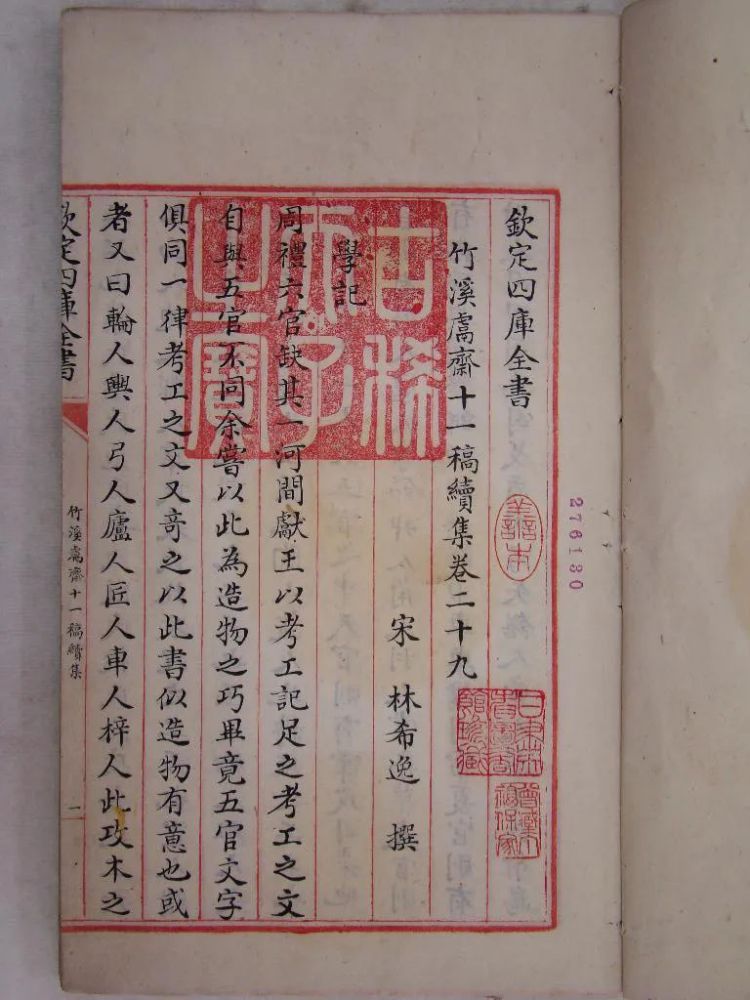 276130
欽定四庫全書
善本
竹溪鬳齋十一稿續集卷二十九
宋 林希逸 撰
古稀天子之寶
學記
周禮六官缺其一河間獻王以考工記足之考工之文
自與五官不同余嘗以此為造物之巧畢竟五官文字
俱同一律考工之文又奇之以此書似造物有意也或
者又曰輪人輿人弓人廬人匠人車人梓人此攻木之
欽定四庫全書
竹溪鬳齋十一稿續集
一